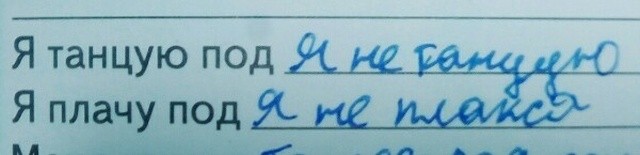 Я танцую под Я не танцую
Я плачу под Я не плакса